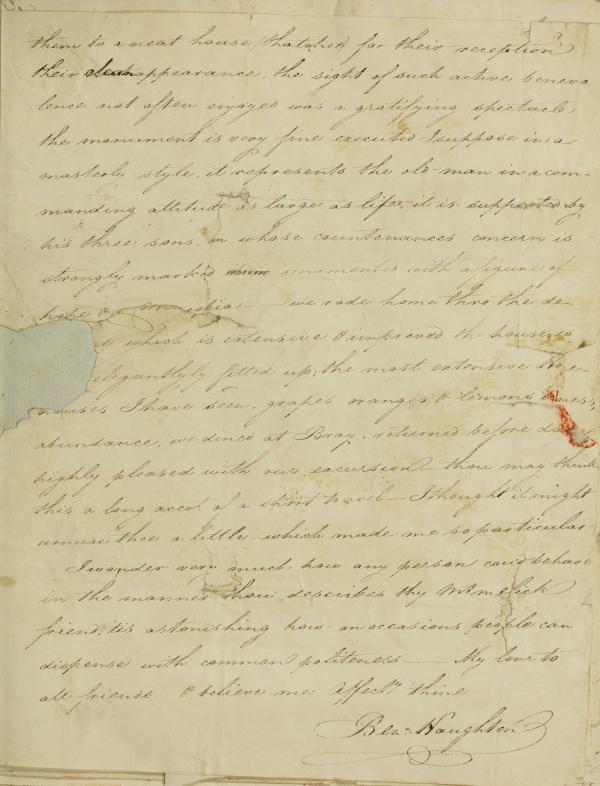 them to a neat house (thatched) for their reception
their appearance, the sight of such active benevo
lence not often enjoyed was a gratifying spectacle,
the monument is very fine executed I suppose in a
masterly style, it represents the old man in a com-
manding attitude as large as life, it is supported by
his three sons, in whose countenances concern is
strongly mark'd ornamented with a figure of
hope &c — we rode home thro the de-
which is extensive & improved the house is
elegantly fitted up; the most extensive
houses I have seen, grapes oranges & lemons in
abundance, we dined at Bray, returned before
highly pleased with our excursion — thou may think
this a long accot. of a short travel — I thought it might
amuse thee a little which made me so particular
I wonder very much how any person could behave
in the manner thou describes thy friend
friend, tis astonishing how on occasions people can
dispense with common politeness — My love to
all friends & believe me affecty. thine
Benj: Haughton